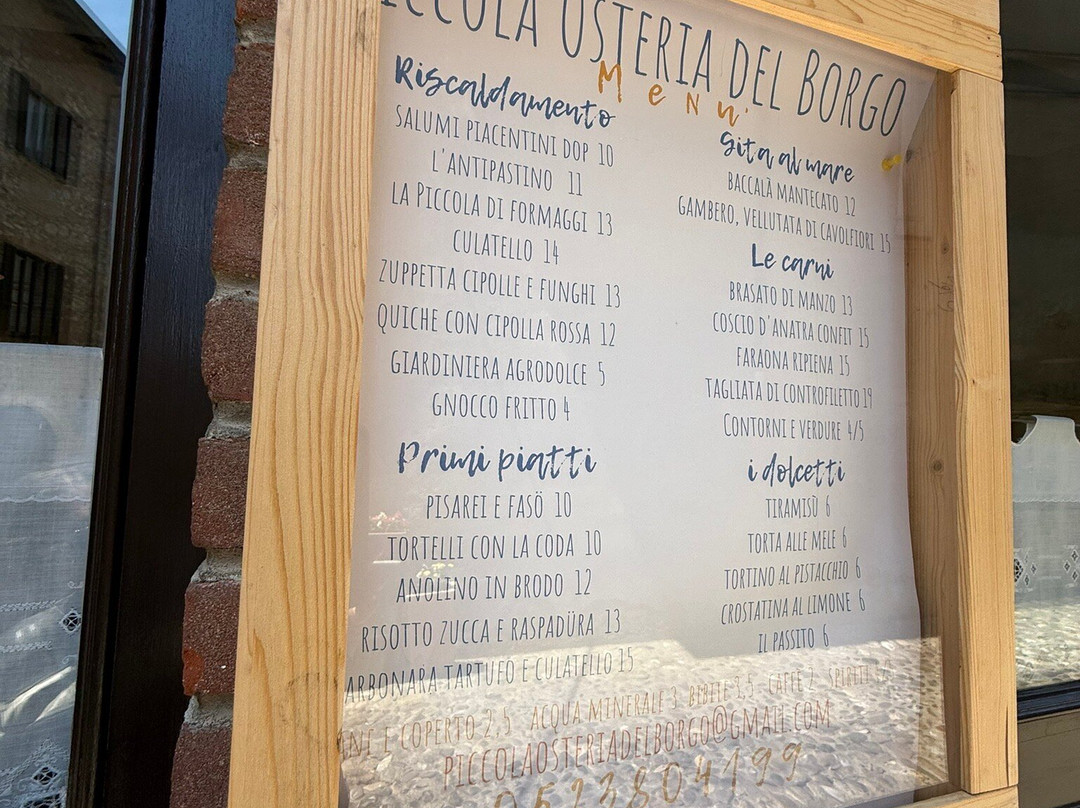 PICCOLA OSTERIA DEL BORGO
Menu'
Riscaldamento
SALUMI PIACENTINI DOP 10
L'ANTIPASTINO 11
LA PICCOLA DI FORMAGGI 13
CULATELLO 14
ZUPPETTA CIPOLLE E FUNGHI 13
QUICHE CON CIPOLLA ROSSA 12
GIARDINIERA AGRODOLCE 5
GNOCCO FRITTO 4
Primi piatti
PISAREI E FASÖ 10
TORTELLI CON LA CODA 10
ANOLINO IN BRODO 12
RISOTTO ZUCCA E RASPADÜRA 13
ARBONARA TARTUFO E CULATELLO 15
Gita al mare
BACCALÀ MANTECATO 12
GAMBERO, VELLUTATA DI CAVOLFIORI 15
Le carni
BRASATO DI MANZO 13
COSCIO D'ANATRA CONFIT 15
FARAONA RIPIENA 15
TAGLIATA DI CONTROFILETTO 19
CONTORNI E VERDURE 4/5
i dolcetti
TIRAMISÙ 6
TORTA ALLE MELE 6
TORTINO AL PISTACCHIO 6
CROSTATINA AL LIMONE 6
IL PASSITO 6
E COPERTO 2,5 ACQUA MINERALE 3 BIBITE 3,5 CAFFÈ 2
PICCOLAOSTERIADELBORGO@GMAIL.COM
0523804199